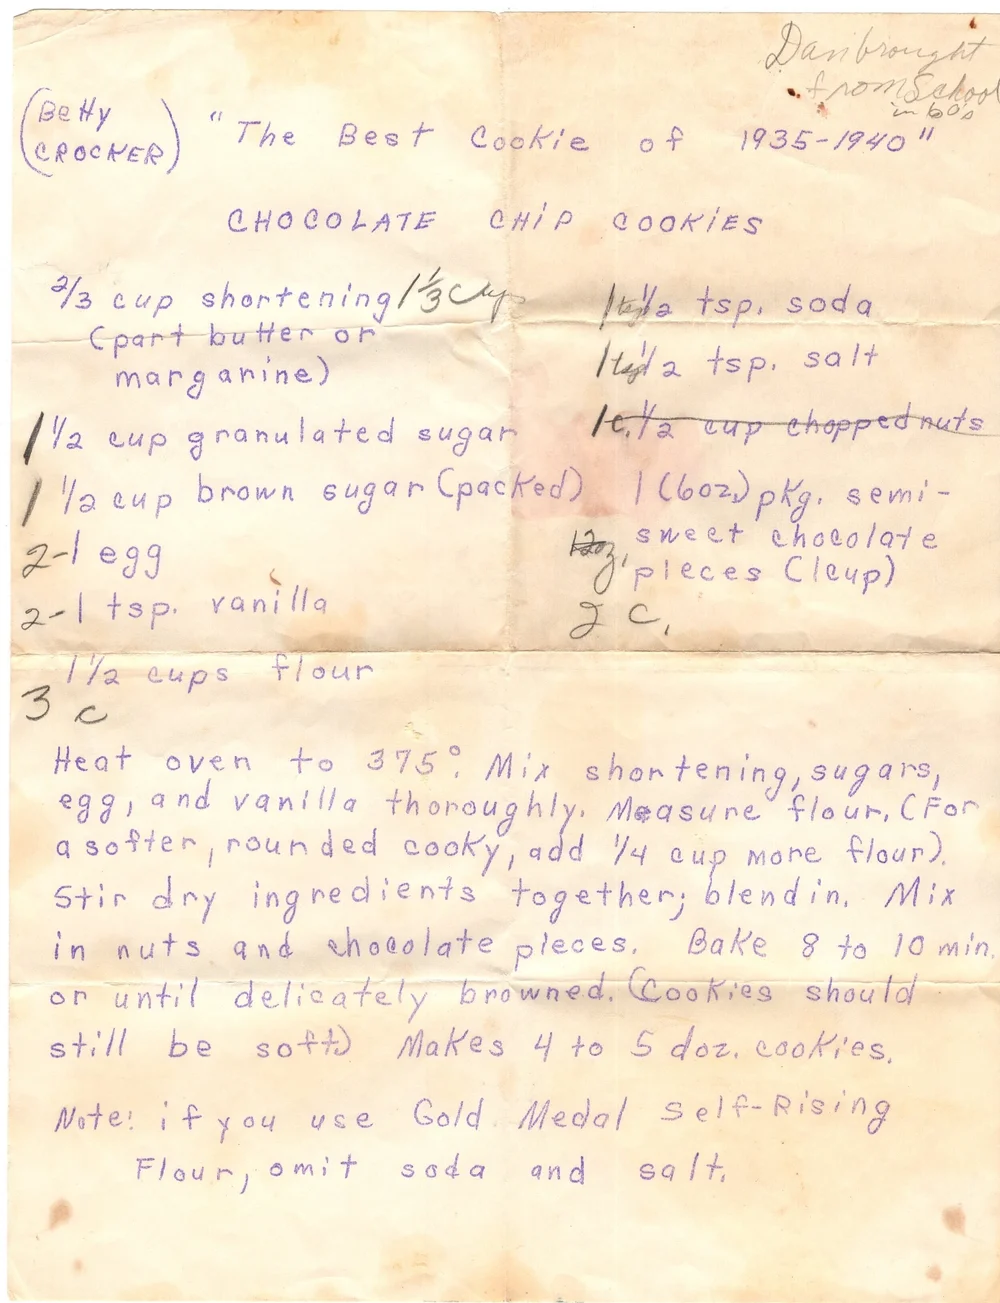 Dan brought
from School
in 60's
(Betty
CROCKER)
"The Best Cookie of 1935-1940"
CHOCOLATE CHIP COOKIES
2/3 cup shortening 1 1/3 Cups
(part butter or
margarine)
1 1/2 cup granulated sugar
1 1/2 cup brown sugar (packed)
2-1 egg
2-1 tsp. vanilla
1 1/2 cups flour
3 c
1 tsp 1/2 tsp. soda
1 tsp 1/2 tsp. salt
1c. 1/2 cup chopped nuts
1 (6oz.) pkg. semi-
sweet chocolate
12oz. pieces (1cup)
2 C.
Heat oven to 375°. Mix shortening, sugars,
egg, and vanilla thoroughly. Measure flour. (For
a softer, rounded cooky, add 1/4 cup more flour).
Stir dry ingredients together; blend in. Mix
in nuts and chocolate pieces. Bake 8 to 10 min.
or until delicately browned. (Cookies should
still be soft.) Makes 4 to 5 doz. cookies.
Note: if you use Gold Medal Self-Rising
Flour, omit soda and salt.